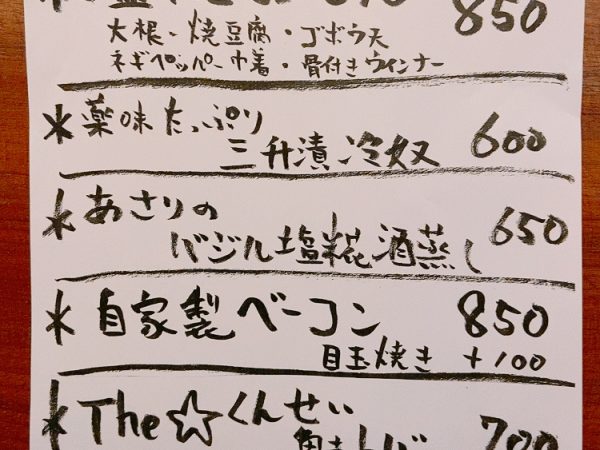 850
大根・焼豆腐・ゴボウ天
ネギペッパー巾着・骨付きウインナー
*薬味たっぷり
三升漬冷奴 600
*あさりの
バジル塩糀酒蒸し 650
*自家製ベーコン 850
目玉焼き +100
*The☆くんせい
700